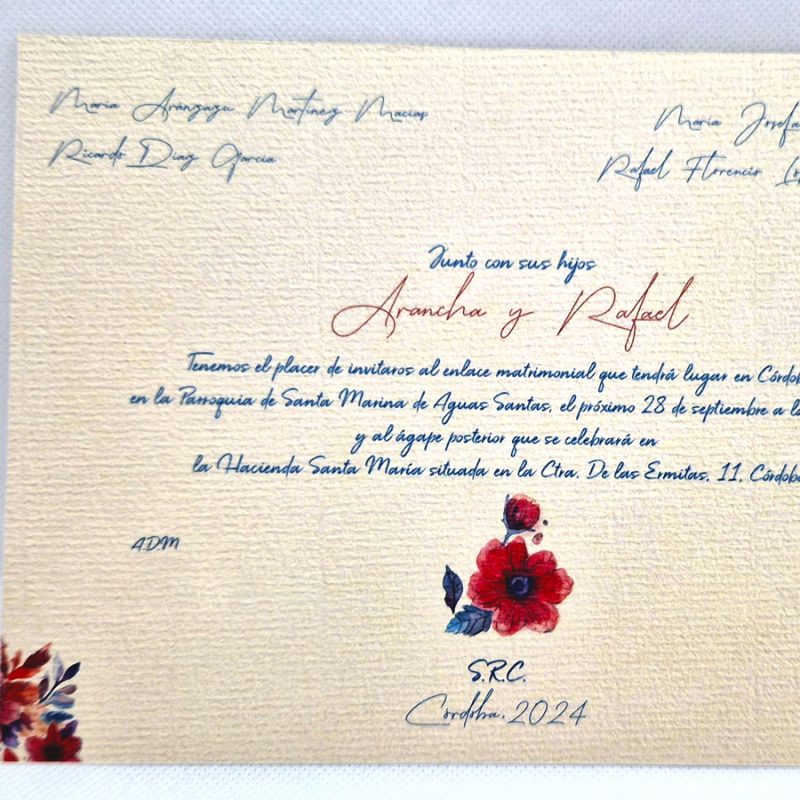 Maria Aranzazu Martinez Macias
Ricardo Diaz Garcia
Maria Josefa
Rafael Florencio
Junto con sus hijos
Arancha y Rafael
Tenemos el placer de invitaros al enlace matrimonial que tendrá lugar en Córdob
en la Parroquia de Santa Marina de Aguas Santas, el próximo 28 de septiembre a
y al ágape posterior que se celebrará en
la Hacienda Santa María situada en la Ctra. De las Ermitas, 11, Córdoba
A.D.M
S.R.C.
Córdoba, 2024